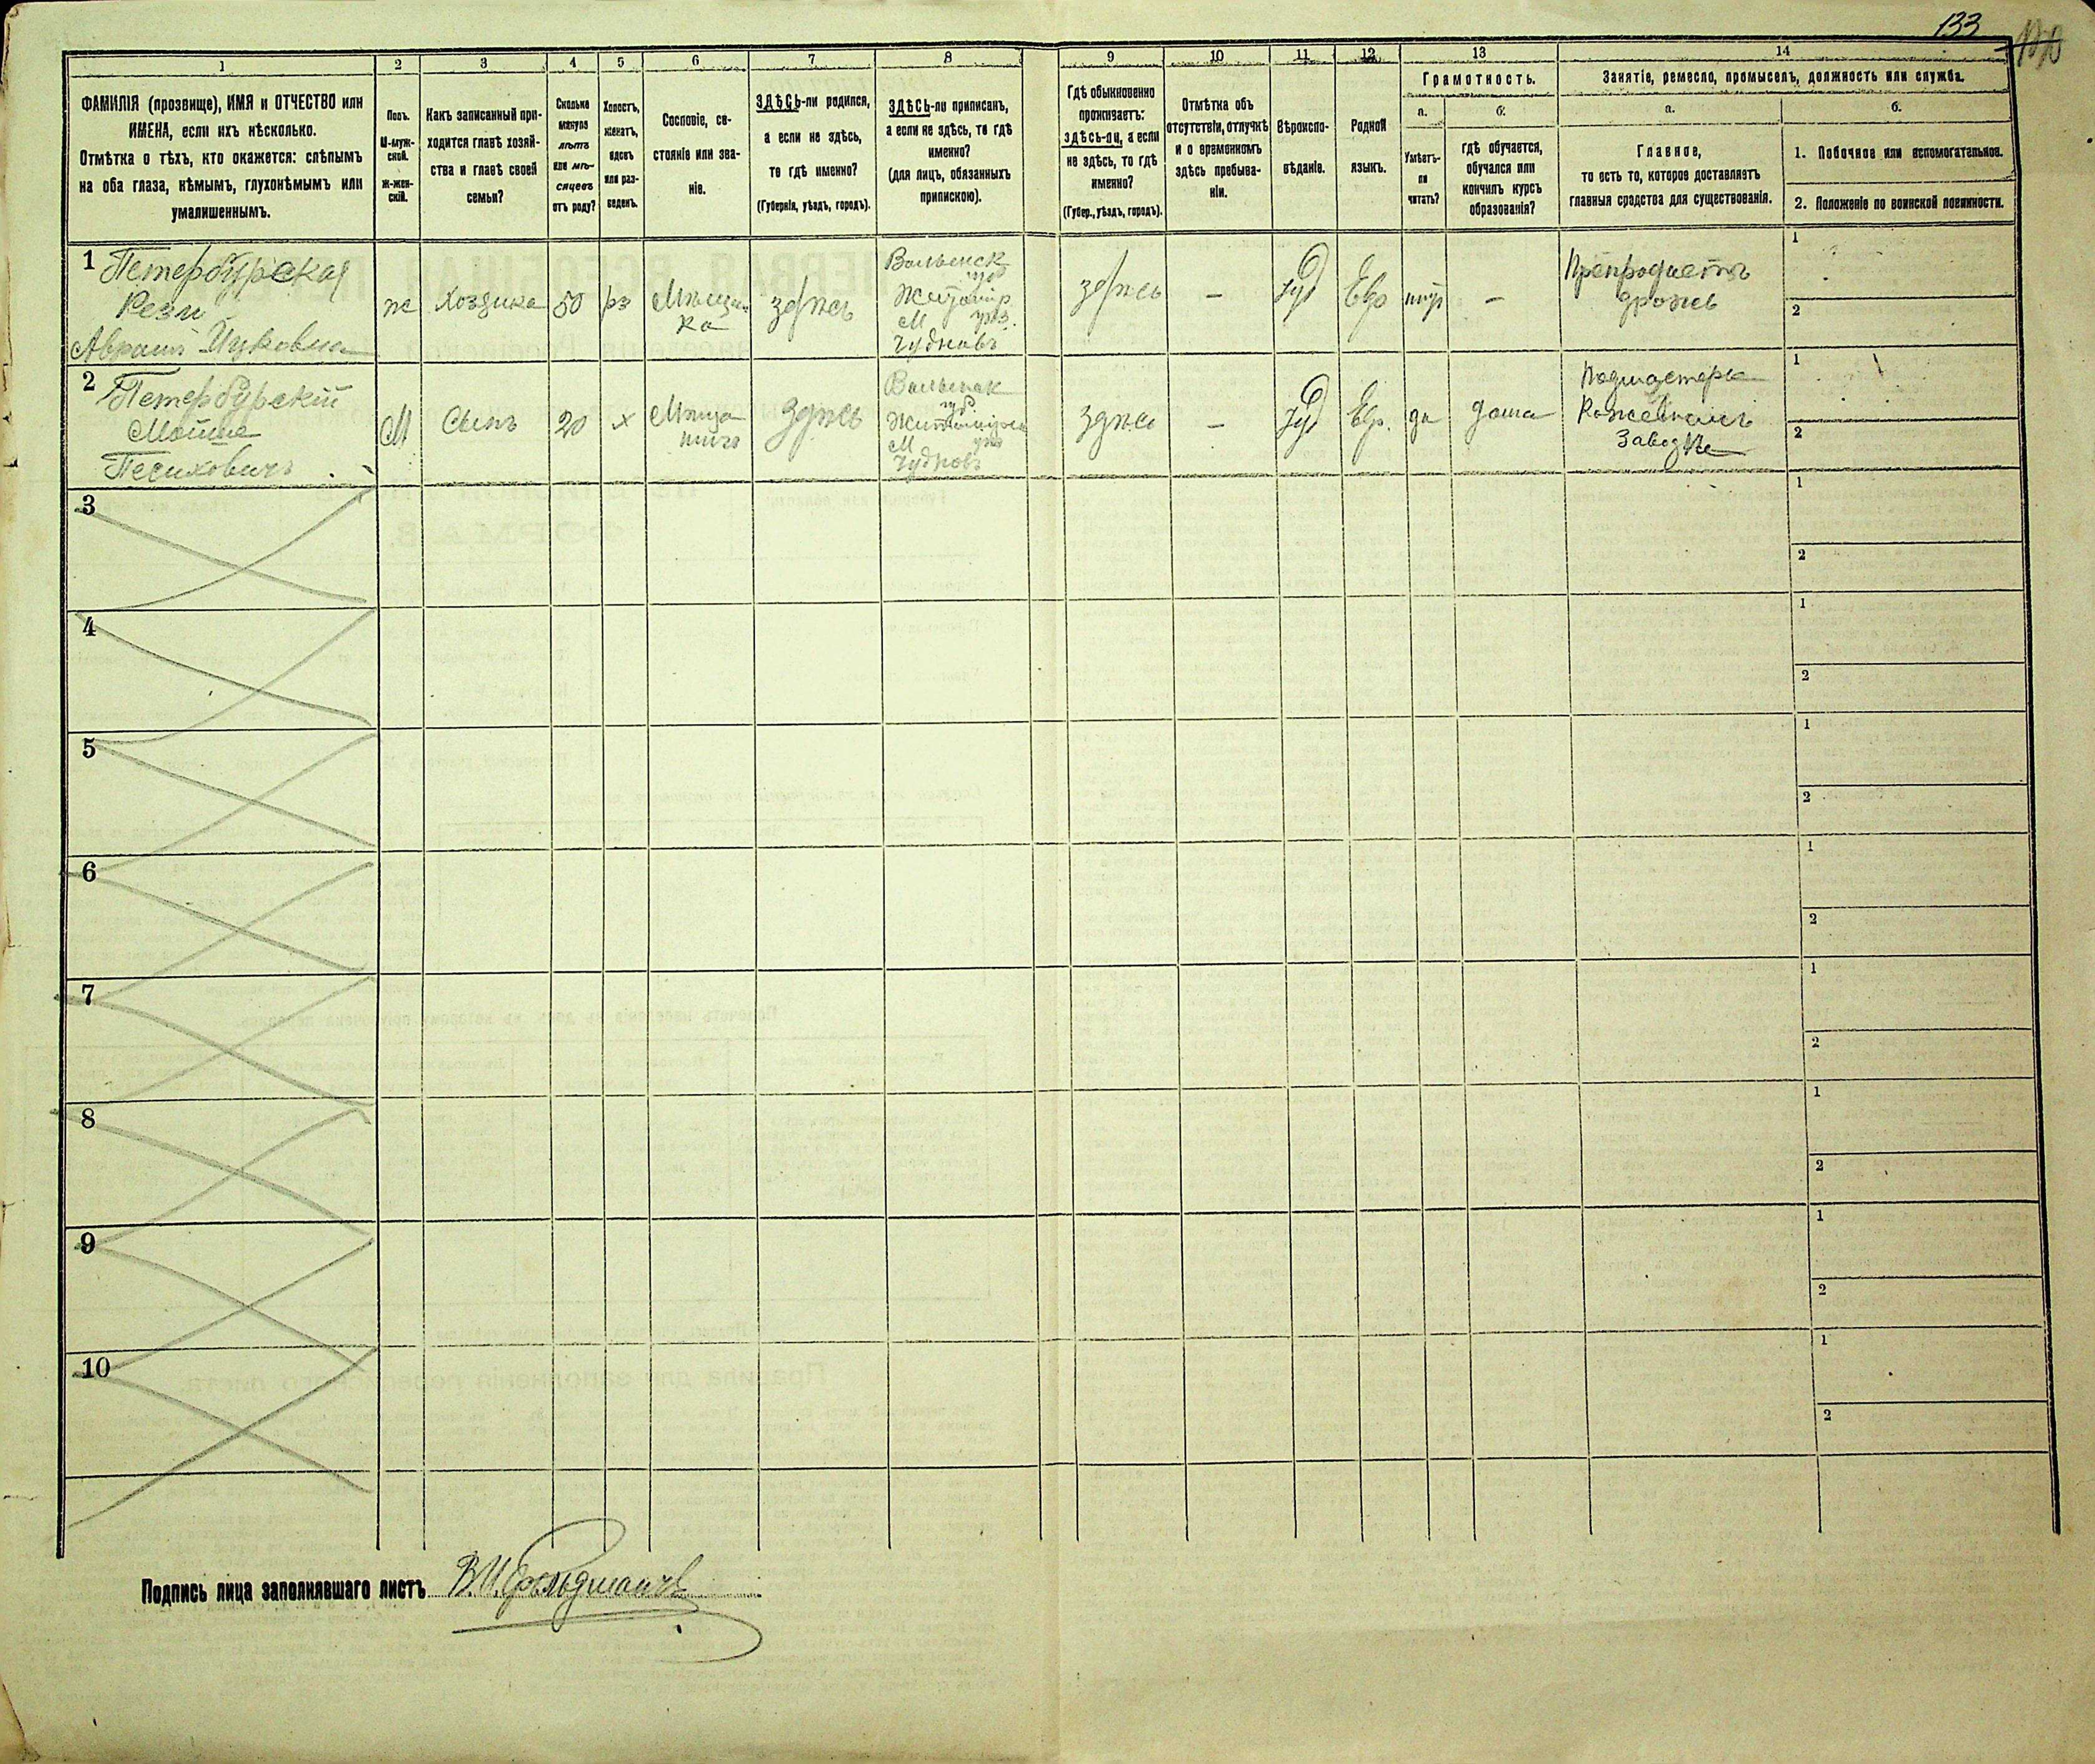 133
1
2
3
4
5
6
7
8
9
10
11
12
13
14
ФАМИЛІЯ (прозвище), ИМЯ и ОТЧЕСТВО или
ИМЕНА, если ихъ нѣсколько.
Отмѣтка о тѣхъ, кто окажется: слѣпымъ
на оба глаза, нѣмымъ, глухонѣмымъ или
умалишеннымъ.
Полъ.
М-муж-
ской.
Ж-жен-
скій.
Какъ записанный при-
ходится главѣ хозяй-
ства и главѣ своей
семьи?
Сколько
минуло
лѣтъ
или мѣ-
сяцевъ
отъ роду?
Холостъ,
женатъ,
вдовъ
или раз-
веденъ.
Сословіе, со-
стояніе или зва-
ніе.
ЗДѢСЬ-ли родился,
а если не здѣсь,
то гдѣ именно?
(Губернія, уѣздъ, городъ).
ЗДѢСЬ-ли приписанъ,
а если не здѣсь, то гдѣ
именно?
(для лицъ, обязанныхъ
припискою).
Гдѣ обыкновенно
проживаетъ:
здѣсь-ли, а если
не здѣсь, то гдѣ
именно?
(Губер., уѣздъ, городъ).
Отмѣтка объ
отсутствіи, отлучкѣ
и о временномъ
здѣсь пребыва-
ніи.
Вѣроиспо-
вѣданіе.
Родной
языкъ.
Грамотность.
а.
Умѣетъ-
ли
читать?
б.
гдѣ обучается,
обучался или
кончилъ курсъ
образованія?
Занятіе, ремесло, промыселъ, должность или служба.
а.
Главное,
то есть то, которое доставляетъ
главныя средства для существованія.
б.
1. Побочное или вспомогательное.
2. Положеніе по воинской повинности.
1 Петербурская
Рези
Авраам Ицковна
ж
Хозяика
50
рз
Мѣщан
ка
здѣсь
Волынск
губ
Житомир
М уѣз.
Чудновъ
здѣсь
—
Іуд
Евр
нѣт
—
дрожь
1
2
2 Петербурскій
Мошше
Песиховичъ
М
Сынъ
20
х
Мѣща
нинъ
Здѣсь
Волынск
губ.
М уѣз
Чудновъ
здѣсь
—
Іуд
Евр.
да
дома
Подмастерье
Кожевномъ
Заводѣ
1
2
3
1
2
4
1
2
5
1
2
6
1
2
7
1
2
8
1
2
9
1
2
10
1
2
Подпись лица заполнявшаго листъ